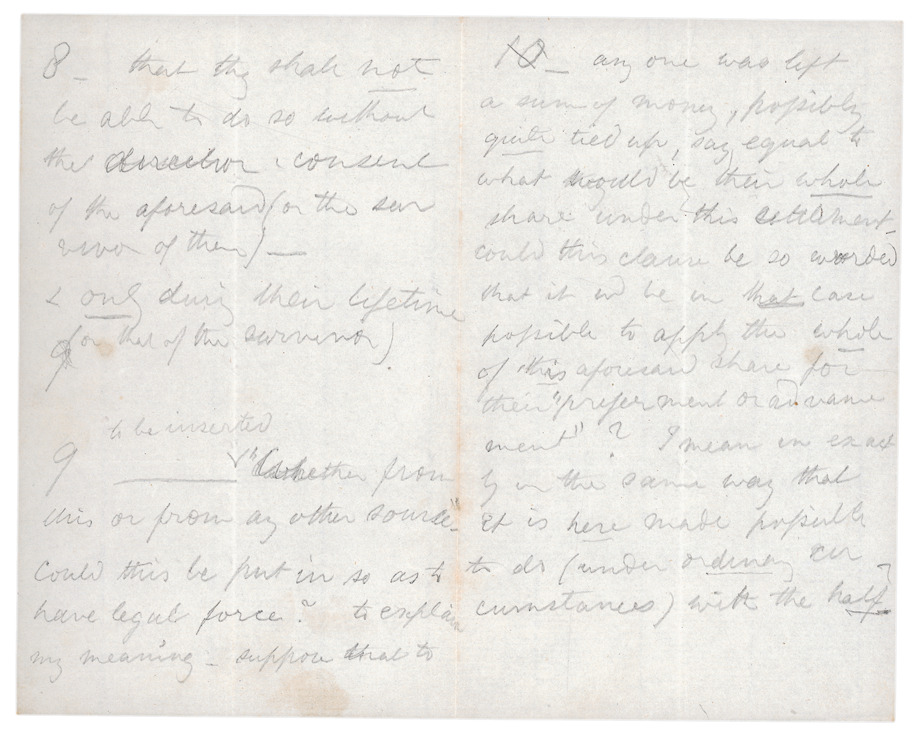 8 — that they shall not
be able to do so without
the direction & consent
of the aforesaid (or the sur
vivor of them) —
& only during their lifetime
(or that of the survivor)
9
to be inserted
9 "whether from
this or from any other source"
could this be put in so as to
have legal force? to explain
my meaning — suppose that to
10 — any one was left
a sum of money, possibly
quite tied up, say equal to
what would be their whole
share under this settlement,
could this clause be so worded
that it wd be in that case
possible to apply the whole
of this aforesaid share for
their "preferment or advance
ment" ? I mean in exact
ly in the same way that
it is here made possible
to do (under ordinary cir
cumstances) with the half